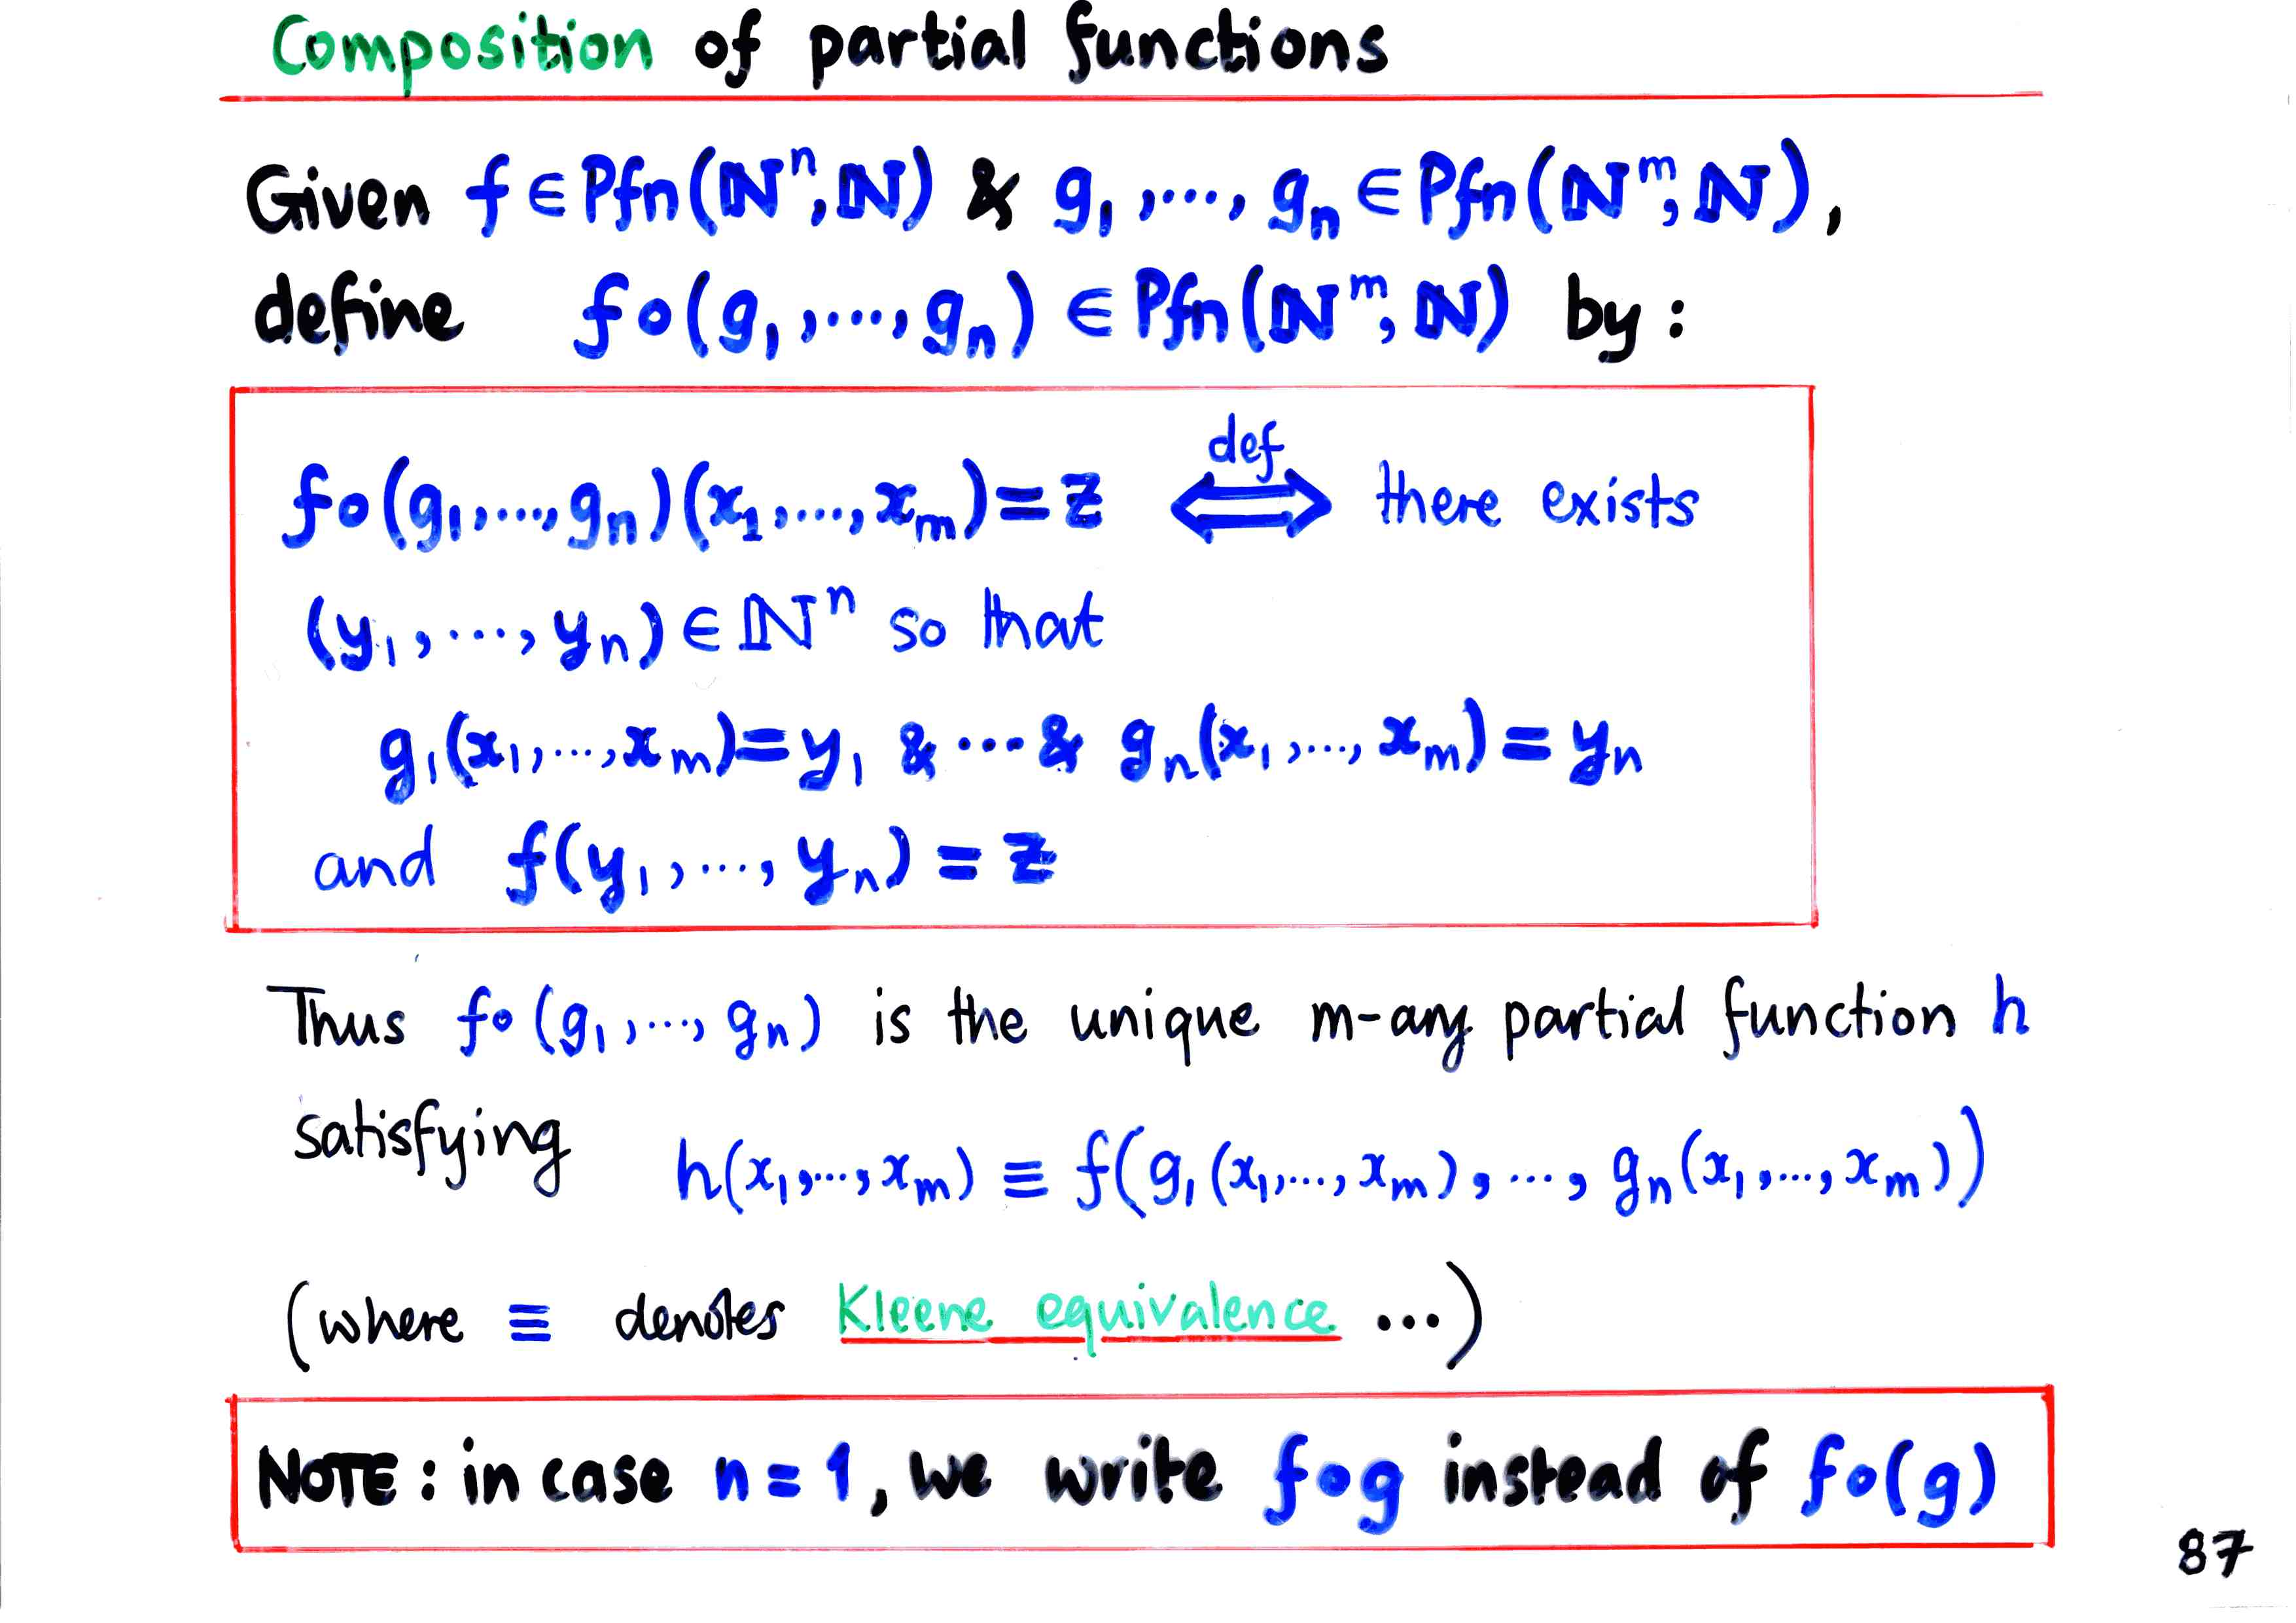 Composition of partial functions
Given f ∈ Pfn(ℕⁿ, ℕ) & g₁,…, gₙ ∈ Pfn(ℕᵐ, ℕ),
define f∘(g₁,…,gₙ) ∈ Pfn(ℕᵐ, ℕ) by:
f∘(g₁,…,gₙ)(x₁,…,xₘ) = z ⟺ def there exists
(y₁,…,yₙ) ∈ ℕⁿ so that
g₁(x₁,…,xₘ) = y₁ & ⋯ & gₙ(x₁,…,xₘ) = yₙ
and f(y₁,…,yₙ) = z
Thus f∘(g₁,…,gₙ) is the unique m-ary partial function h
satisfying h(x₁,…,xₘ) ≡ f(g₁(x₁,…,xₘ),…,gₙ(x₁,…,xₘ))
(where ≡ denotes Kleene equivalence …)
NOTE: in case n=1, we write f∘g instead of f∘(g)
87